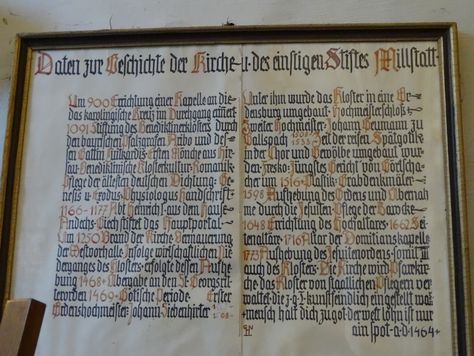 Daten zur Geschichte der Kirche u. des einstigen Stiftes Millstatt
Um 900 Errichtung einer Kapelle an die-
das karolingische Kreuz im Durchgang erinnert
1091 Stiftung des Benediktinerklosters durch
den bayrischen Pfalzgrafen Aribo und des-
sen Gattin Erste Mönche aus Hir-
sau-Benediktinische Klosterkultur-Romanik-
Pflege der ältesten deutschen Dichtung Ge-
nesis u. Exodus-Physiologus Handschrift-
1166-1177 Abt Heinrich aus dem Hause
Andechs stiftet das Hauptportal
Um 1250 Brand der Kirche Erneuerung
der Westvorhalle Infolge wirtschaftlichen Nie
derganges des Klosters erfolgte dessen Aufhe
bung 1468 Übergabe an den St. Georgsrit-
terorden 1469 Gotische Periode Erster
Ordenshochmeister Johann Siebenhirter
1508
Unter ihm wurde das Kloster in eine Or-
densburg umgebaut Hochmeisterschloß
Zweiter Hochmeister Johann Geumann zu
Gallspach 1533 Seit der reifen Spätgotik
in der Chor und Gewölbe umgebaut wur
den Fresko: Jüngstes Gericht von Görtscha-
cher um 1516 Plastik Grabdenkmäler
1598 Aufhebung des Ordens und Übernah
me durch die Jesuiten Pflege der Barocke
1648 Errichtung des Hochaltares 1662 Sei-
tenaltäre 1716 Altar der Domitianskapelle
1773 Aufhebung des Jesuitenordens somit
auch des Klosters Die Kirche wird Pfarrkir-
che das Kloster von staatlichen Pflegern ver
waltet die z. T. kunstfeindlich eingestellt wa
mensch halt dich zu got der welt lohn ist nur
ain spot a.d. 1464